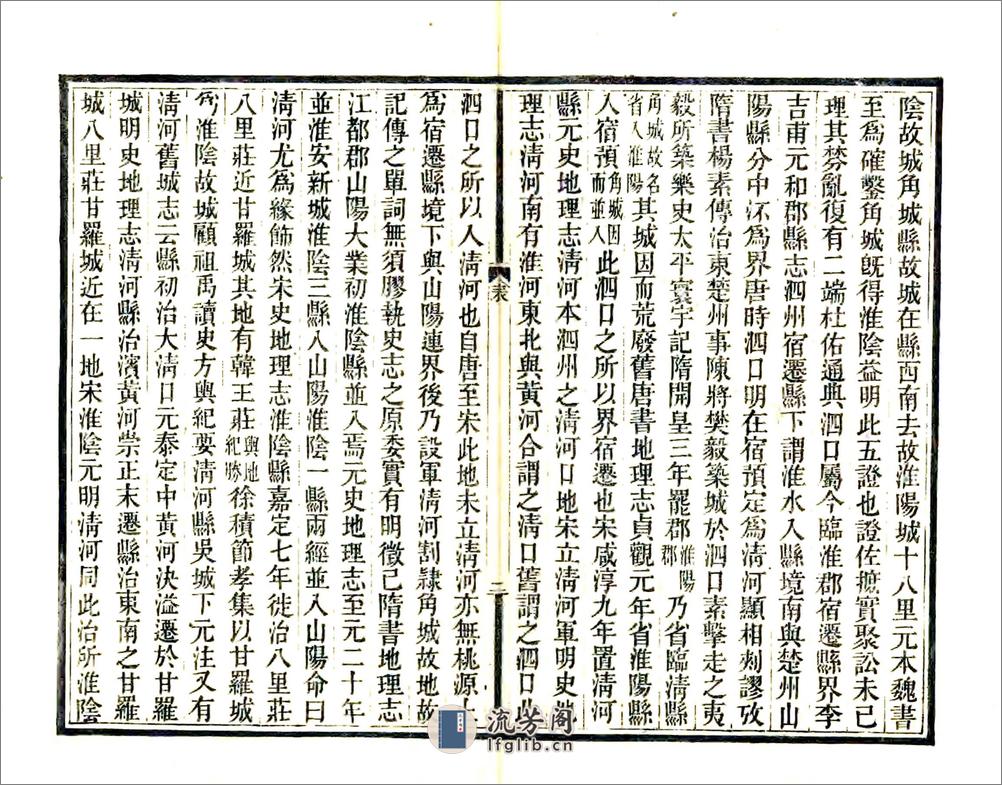 陰故城角城縣故城在縣西南去故淮陽城十八里元本魏書
至爲確鑿角城旣得淮陰益明此五證也證佐摭實聚訟未已
理其棼亂復有二端杜佑通典泗口屬今臨淮郡宿遷縣界李
吉甫元和郡縣志泗州宿遷縣下謂淮水入縣境南與楚州山
陽縣分中流爲界唐時泗口明在宿預定爲清河顯相剡謬攷
隋書楊素傳治東楚州事陳將樊毅築城於泗口素擊走之夷
毅所築樂史太平寰宇記隋開皇三年罷郡淮陽郡乃省臨清縣
角城故名省入淮陽其城因而荒廢舊唐書地理志貞觀元年省淮陽縣
入宿預角城因而並入此泗口之所以界宿遷也宋咸淳九年置清河
縣元史地理志清河本泗州之清河口地宋立清河軍明史地
理志清河南有淮河東北與黃河合謂之清口舊謂之泗口此
泗口之所以入清河也自唐至宋此地未立清河亦無桃源
爲宿遷縣境下與山陽連界後乃設軍清河割隸角城故地故
記傳之單詞無須膠執史志之原委實有明徵已隋書地理志
江都郡山陽大業初淮陰縣並入焉元史地理志至元二十年
並淮安新城淮陰三縣入山陽淮陰一縣兩經並入山陽命曰
清河尤爲緣飾然宋史地理志淮陰縣嘉定七年徙治八里莊
八里莊近甘羅城其地有韓王莊輿地紀勝徐積節孝集以甘羅城
爲淮陰故城顧祖禹讀史方輿紀要清河縣吳城下元注又有
清河舊城志云縣初治大清口元泰定中黃河決溢遷於甘羅
城明史地理志清河縣治濱黃河崇正末遷縣治東南之甘羅
城八里莊甘羅城近在一地宋淮陰元明清河同此治所淮陰
表
二
流芳阁
lfglib.cn